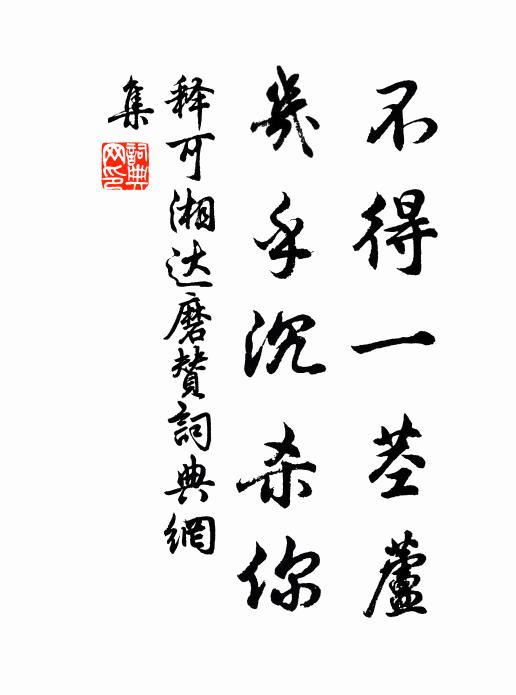 不得一茎蘆
幾乎沉杀你
释可湘达磨贊詞典網
集
詞典网印